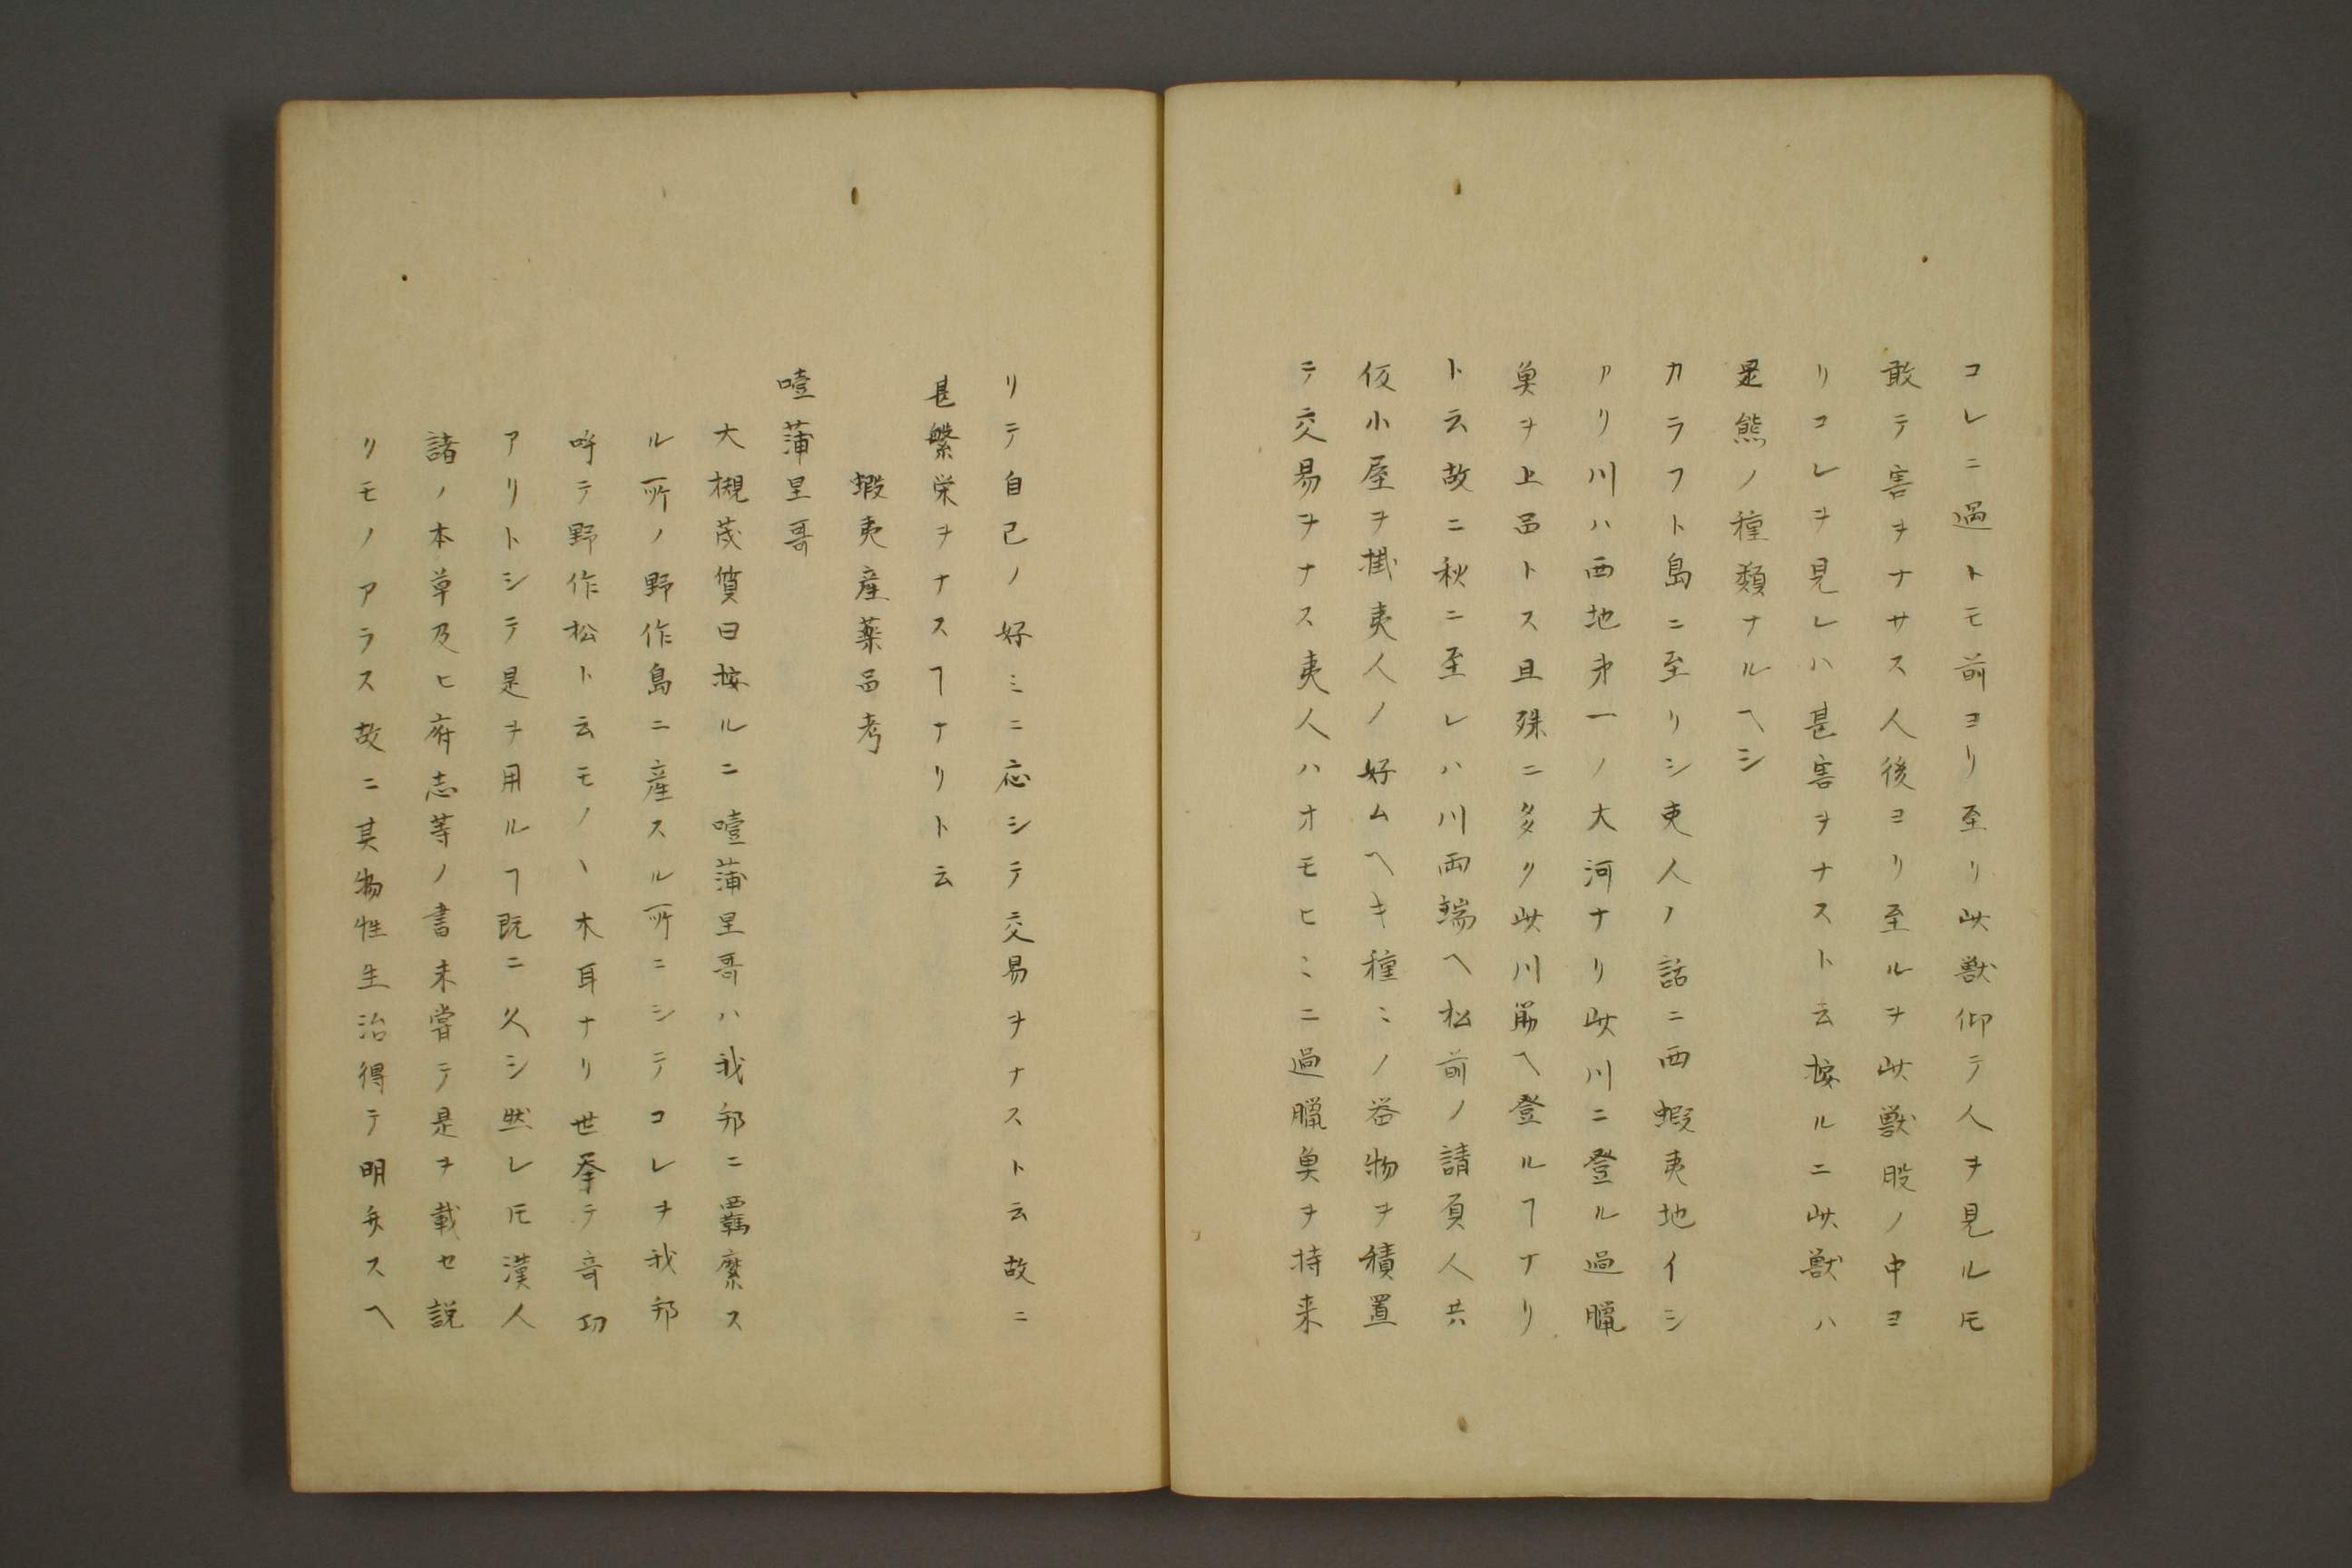 コレニ過トモ前ヨリ至リ此獣仰テ人ヲ見ル𪜈
敢テ害ヲナサス人後ヨリ至ルヲ此獣股ノ中ヨ
リコレヲ見レハ甚害ヲナスト云按ルニ此獣ハ
是熊ノ種類ナルヘシ
カラフト島ニ至リシ吏人ノ話ニ西蝦夷地イシ
アリ川ハ西地第一ノ大河ナリ此川ニ登ル過臘
魚ヲ上品トス且殊ニ多ク此川筋ヘ登ルヿナリ
ト云故ニ秋ニ至レハ川両端ヘ松前ノ請負人共
仮小屋ヲ掛夷人ノ好ムヘキ種〻ノ器物ヲ積置
テ交易ヲナス夷人ハオモヒ〻ニ過臘魚ヲ持来
リテ自己ノ好ミニ応シテ交易ヲナスト云故ニ
甚繁栄ヲナスヿナリト云
蝦夷産薬品考
噎蒲里哥
大槻茂質曰按ルニ噎蒲里哥ハ我邦ニ羈縻ス
ル所ノ野作島ニ産スル所ニシテコレヲ我邦
呼テ野作松ト云モノヽ木耳ナリ世挙テ奇功
アリトシテ是ヲ用ルヿ既ニ久シ然レ𪜈漢人
諸ノ本草及ヒ府志等ノ書未嘗テ是ヲ載セ説
リモノアラス故ニ其物性生治得テ明弁スヘ